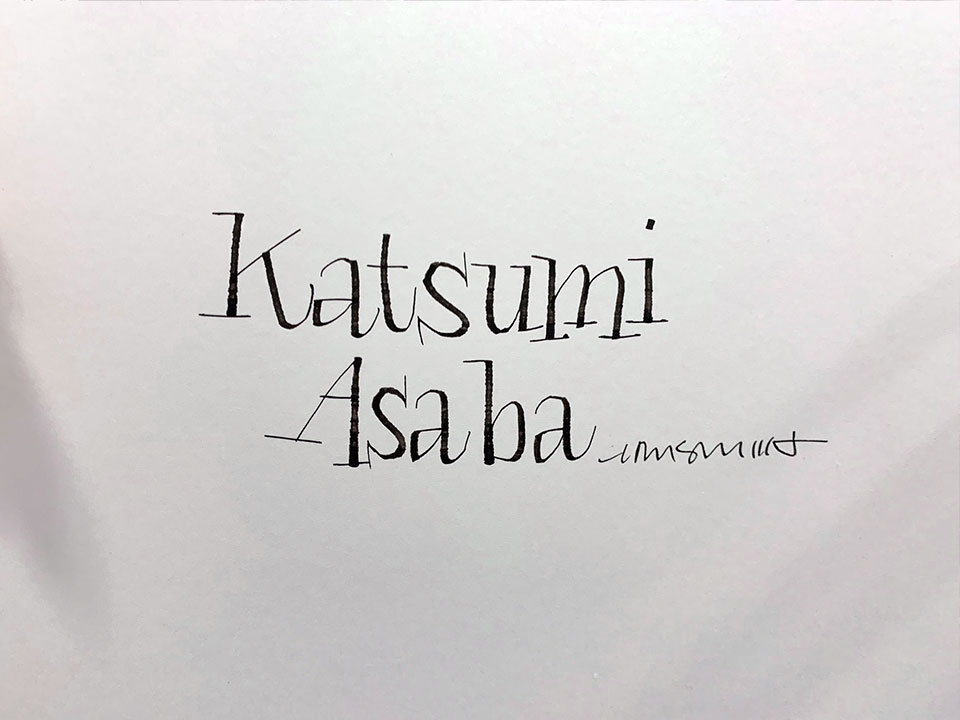 Katsumi
Asaba